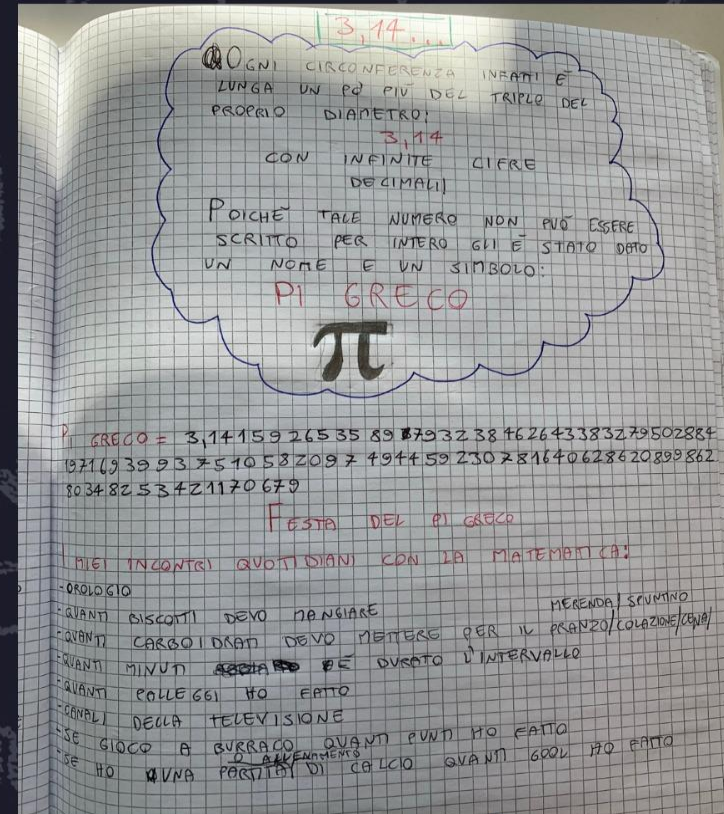 3,14...
OGNI CIRCONFERENZA INFATTI È
LUNGA UN PÒ PIÙ DEL TRIPLO DEL
PROPRIO DIAMETRO:
3,14
CON INFINITE CIFRE
DECIMALI)
POICHÈ TALE NUMERO NON PUÒ ESSERE
SCRITTO PER INTERO GLI È STATO DATO
UN NOME E UN SIMBOLO:
PI GRECO
π
PI GRECO = 3,141592653589793238462643383279502884
19716939937510582097494459230781640628620899862
8034825342117 0679
FESTA DEL PI GRECO
I MIEI INCONTRI QUOTIDIANI CON LA MATEMATICA:
-OROLOGIO
-QUANTI BISCOTTI DEVO MANGIARE
MERENDA/SPUNTINO
-QUANTI CARBOIDRATI DEVO METTERE PER IL PRANZO/COLAZIONE/CENA/
-QUANTI MINUTI È DURATO L'INTERVALLO
-QUANTI PALLEGGI HO FATTO
-CANALI DELLA TELEVISIONE
-SE GIOCO A BURRACO QUANTI PUNTI HO FATTO
O ALLENAMENTO
-SE HO UNA PARTITA DI CALCIO QUANTI GOOL HO FATTO